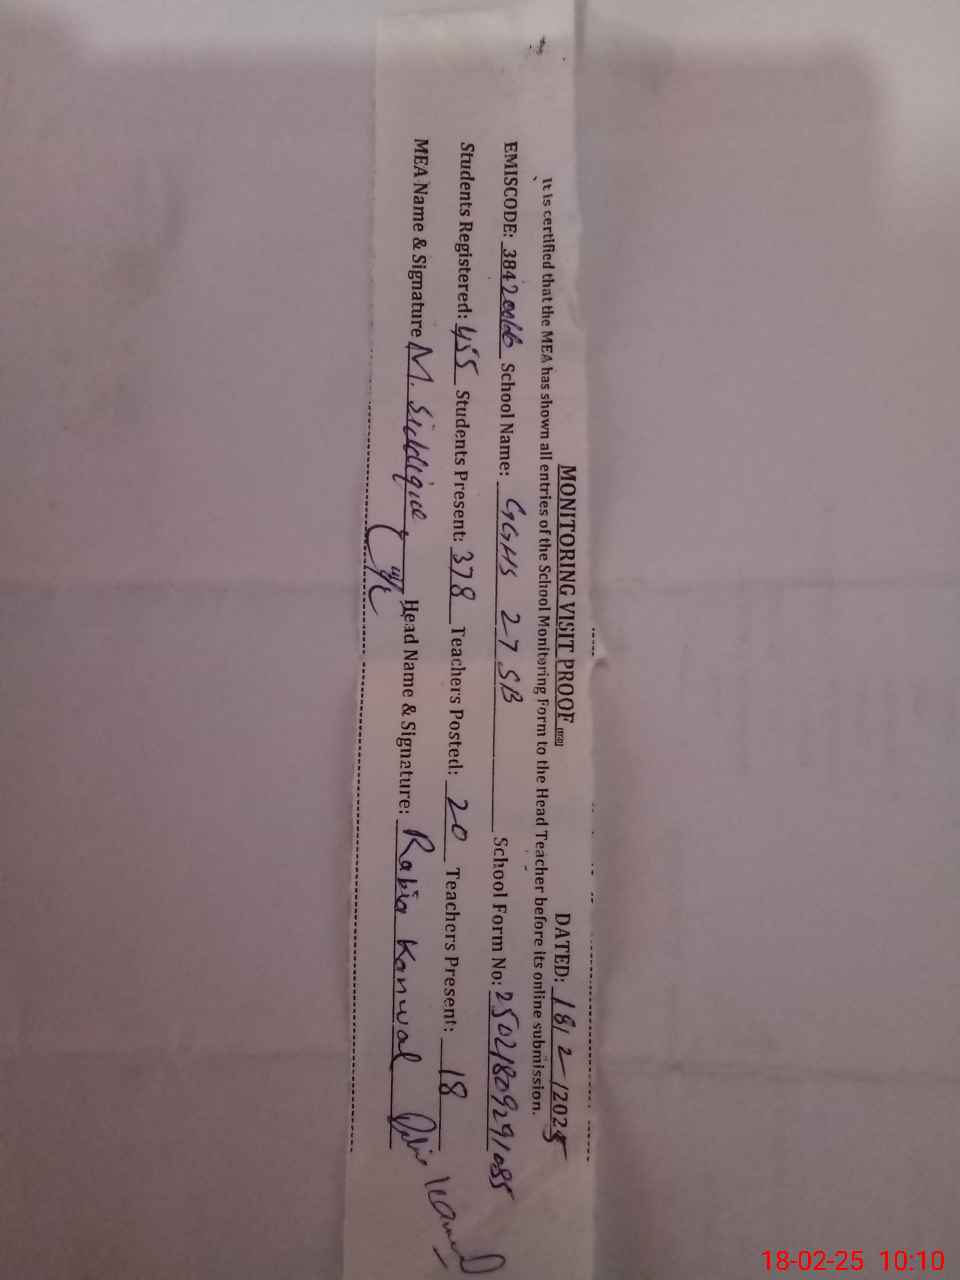 MONITORING VISIT PROOF DATED: 18/2/2025
It is certified that the MEA has shown all entries of the School Monitoring Form to the Head Teacher before its online submission.
EMISCODE: 38420066 School Name: GGHS 27 SB School Form No: 25021809291085
Students Registered: 455 Students Present: 378 Teachers Posted: 20 Teachers Present: 18
MEA Name & Signature M. Siddique Head Name & Signature: Rabia Kanwal
18-02-25 10:10